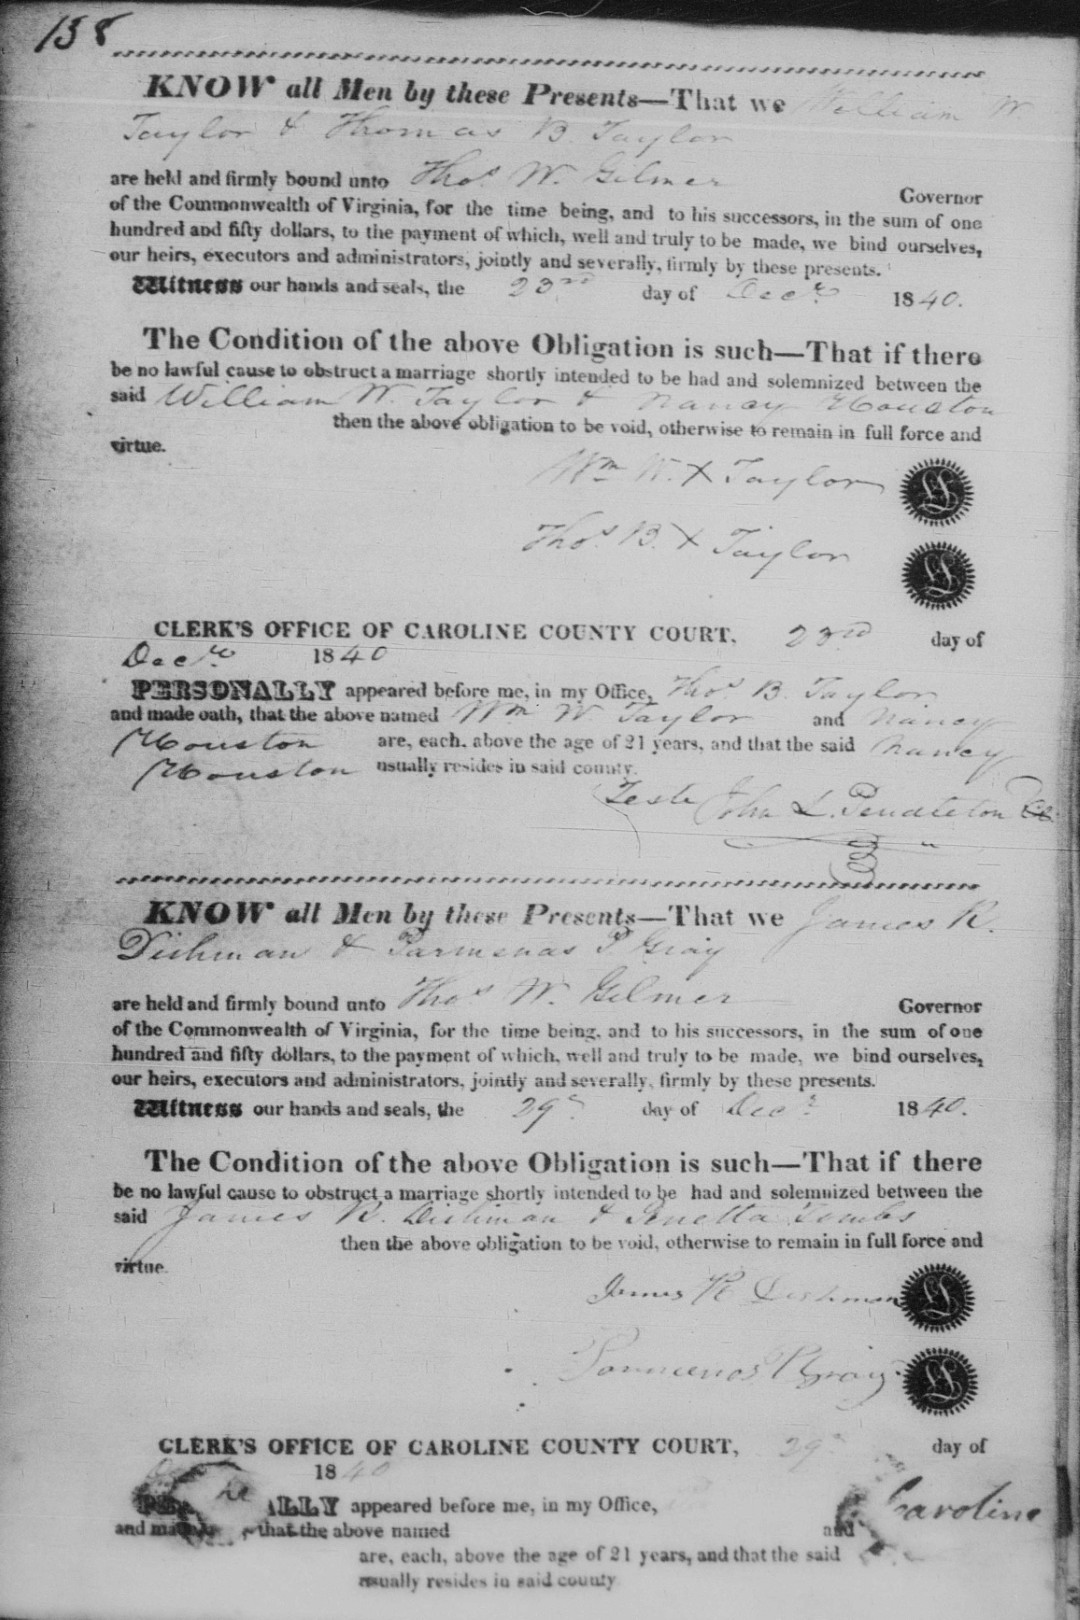 158
KNOW all Men by these Presents—That we William W.
Taylor & Thomas B. Taylor
are held and firmly bound unto Thos. W. Gilmer Governor
of the Commonwealth of Virginia, for the time being, and to his successors, in the sum of one
hundred and fifty dollars, to the payment of which, well and truly to be made, we bind ourselves,
our heirs, executors and administrators, jointly and severally, firmly by these presents.
Witness our hands and seals, the 23rd day of Decr. 1840.
The Condition of the above Obligation is such—That if there
be no lawful cause to obstruct a marriage shortly intended to be had and solemnized between the
said William W. Taylor & Nancy Houston
then the above obligation to be void, otherwise to remain in full force and
virtue.
Wm W. X Taylor
Thos. B. X Taylor
CLERK'S OFFICE OF CAROLINE COUNTY COURT, 23rd day of
Decr. 1840
PERSONALLY appeared before me, in my Office, Thos. B. Taylor
and made oath, that the above named Wm W Taylor and Nancy
Houston are, each, above the age of 21 years, and that the said Nancy
Houston usually resides in said county.
Teste John L. Pendleton
KNOW all Men by these Presents—That we James R.
Dishman & Parmenas P. Gray
are held and firmly bound unto Thos. W. Gilmer Governor
of the Commonwealth of Virginia, for the time being, and to his successors, in the sum of one
hundred and fifty dollars, to the payment of which, well and truly to be made, we bind ourselves,
our heirs, executors and administrators, jointly and severally, firmly by these presents.
Witness our hands and seals, the 29 day of Decr. 1840.
The Condition of the above Obligation is such—That if there
be no lawful cause to obstruct a marriage shortly intended to be had and solemnized between the
said James R. Dishman & Tombs
then the above obligation to be void, otherwise to remain in full force and
virtue.
James R Dishman
Gray
CLERK'S OFFICE OF CAROLINE COUNTY COURT, 29 day of
1840
ALLY appeared before me, in my Office,
Caroline
and that the above named and
are, each, above the age of 21 years, and that the said
usually resides in said county